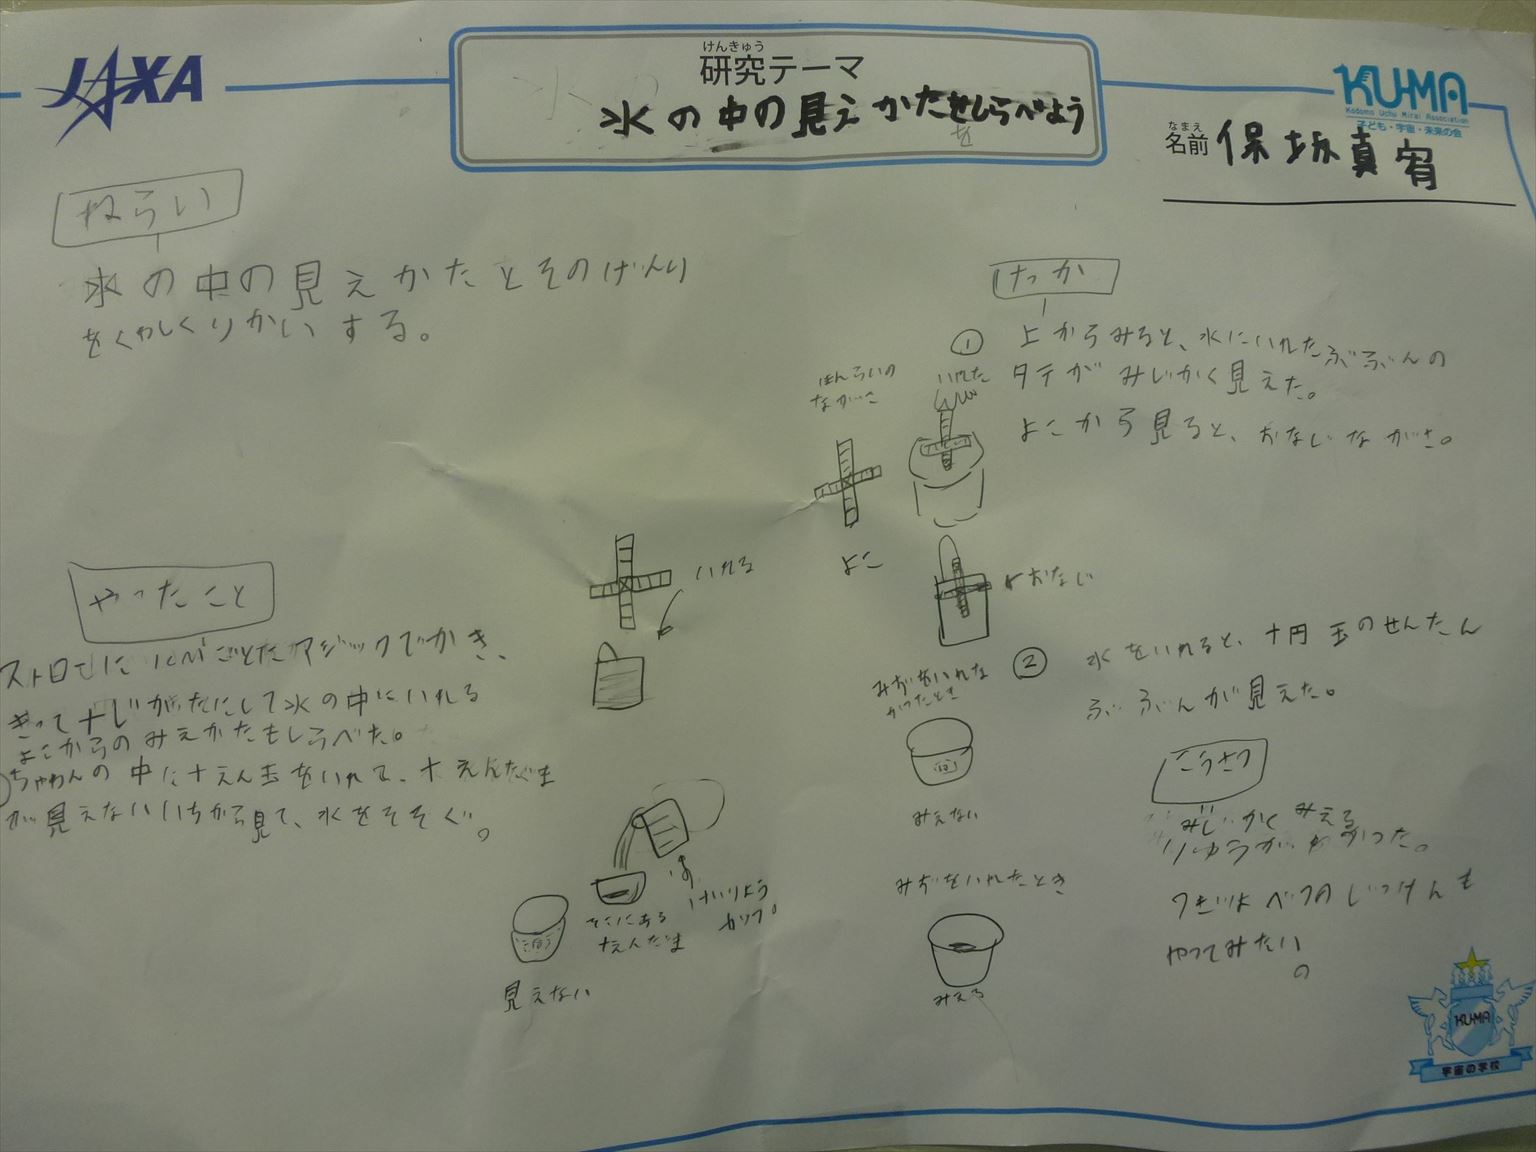 JAXA
けんきゅう
研究テーマ
水の中の見えかたをしらべよう
KU-MA
Kodomo Uchu Mirai Association
子ども・宇宙・未来の会
なまえ
名前 保坂真宥
ねらい
水の中の見えかたとそのげんり
をくわしくりかいする。
やったこと
ストローに1cmごとにマジックでかき、
きって十じがたにして水の中にいれる
よこからのみえかたもしらべた。
ちゃわんの中に十えん玉をいれて、十えんだま
が見えないいちから見て、水をそそぐ。
いれる
見えない
そこにある
十えんだま
けいりよう
カップ
けっか
① 上からみると、水にいれたぶぶんの
タテがみじかく見えた。
よこから見ると、おなじながさ。
ほんらいの
ながさ
いれた
よこ
おなじ
② 水をいれると、十円玉のせんたん
ぶぶんが見えた。
みずをいれな
かったとき
みえない
みずをいれたとき
みえる
こうさつ
みじかくみえる
りゆうがわかった。
つぎはべつのじっけんも
やってみたい。
KU-MA
宇宙の学校